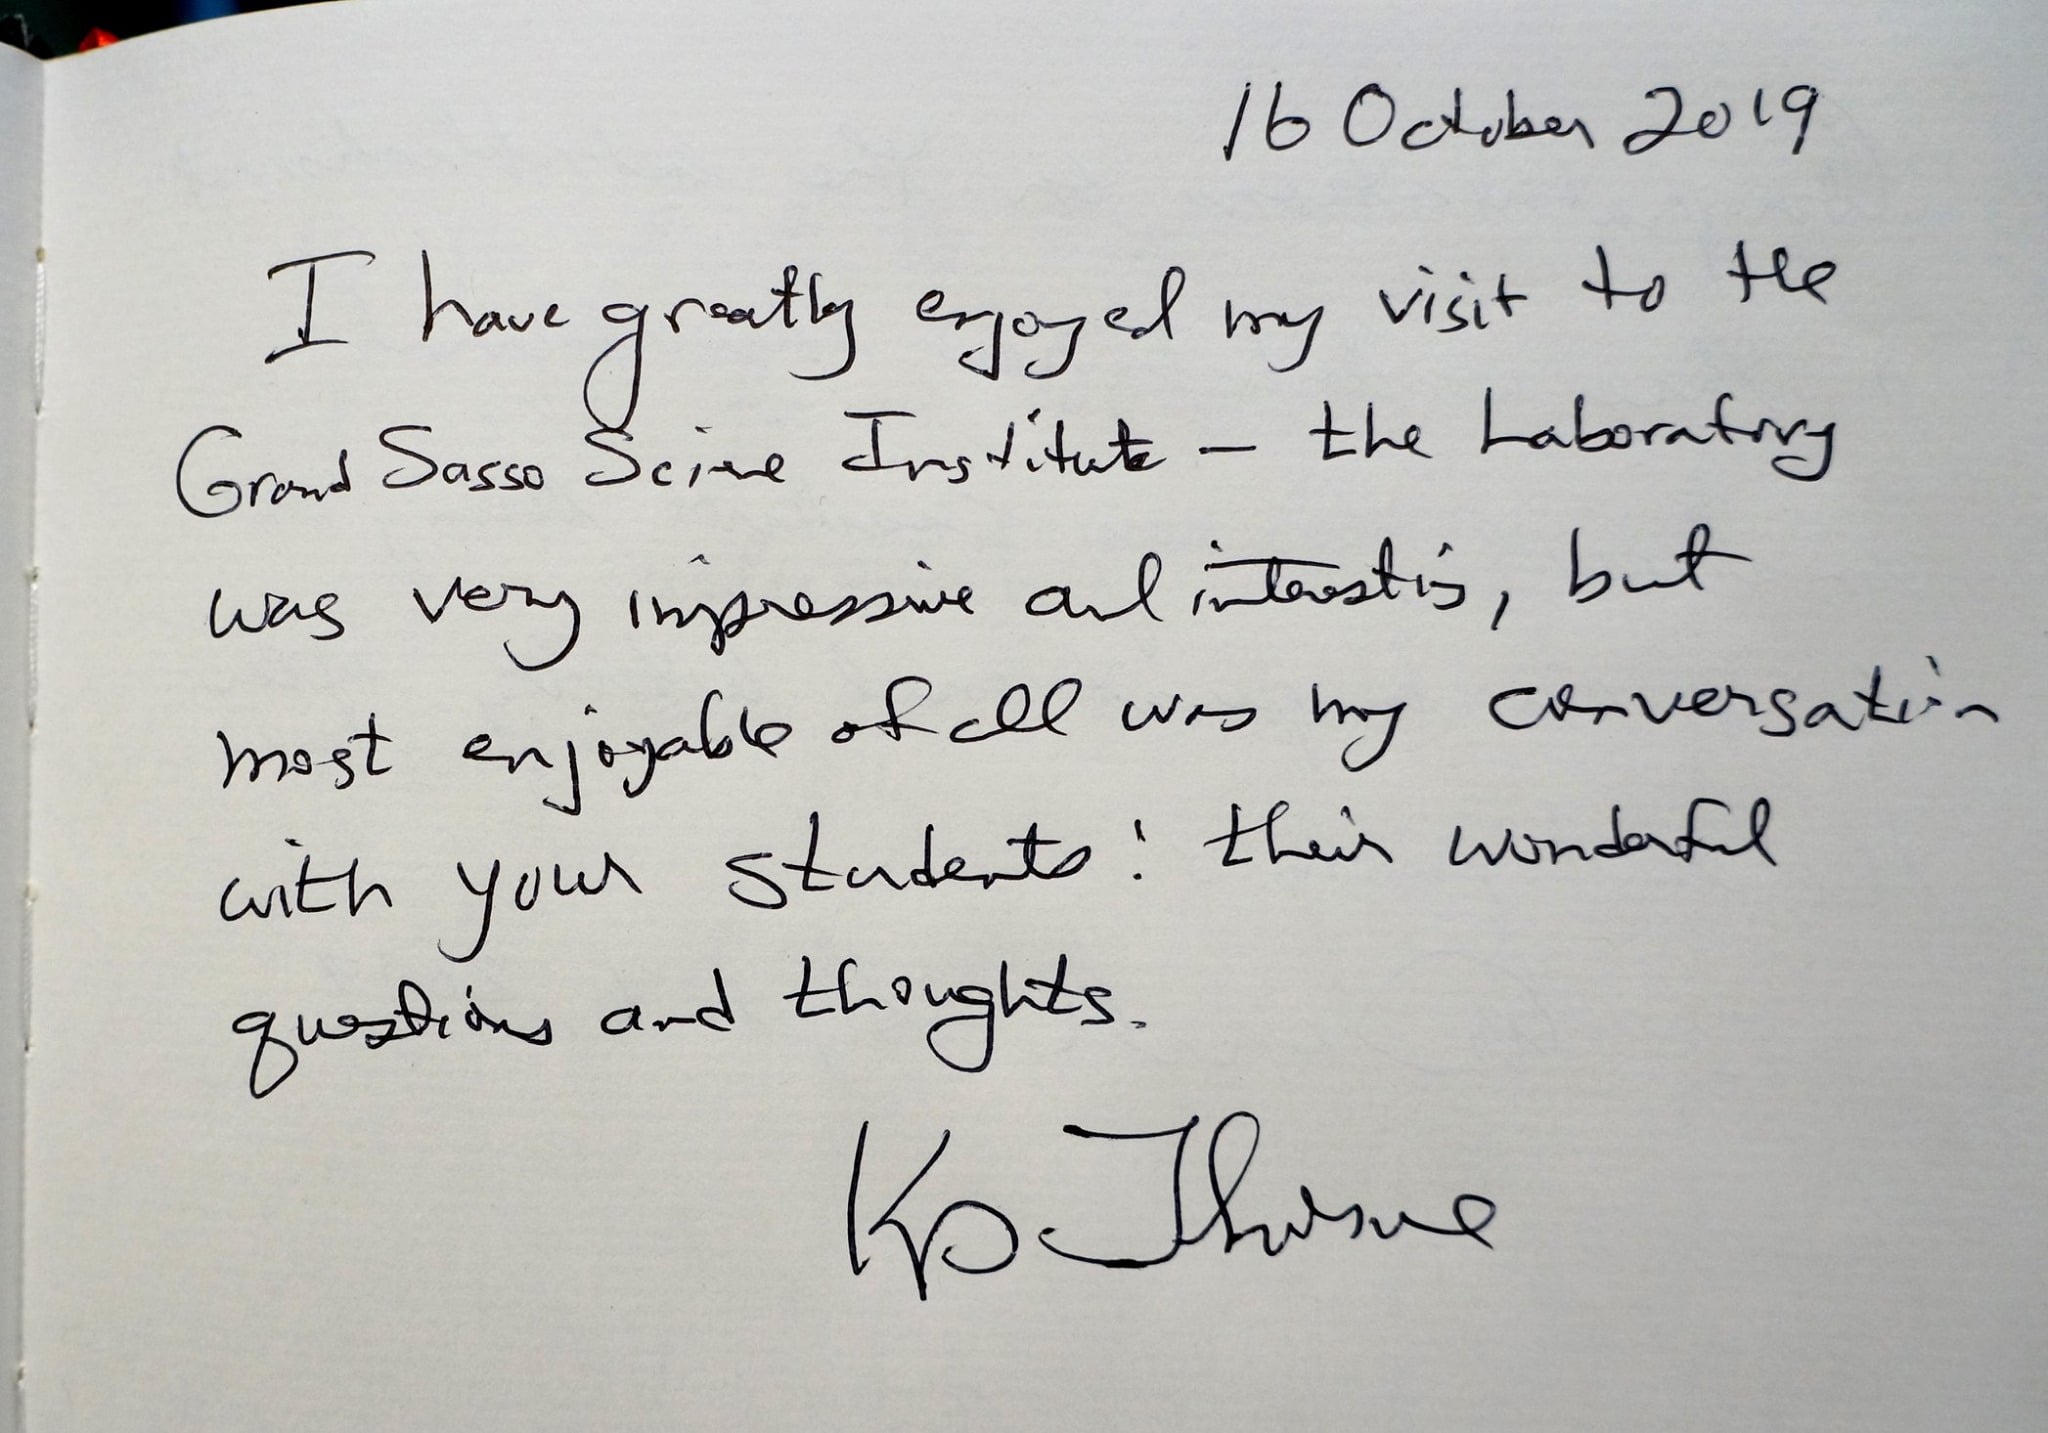 16 October 2019
I have greatly enjoyed my visit to the
Grand Sasso Science Institute – the Laboratory
was very impressive and interesting, but
most enjoyable of all was my conversation
with your students: their wonderful
questions and thoughts.
Kip Thorne